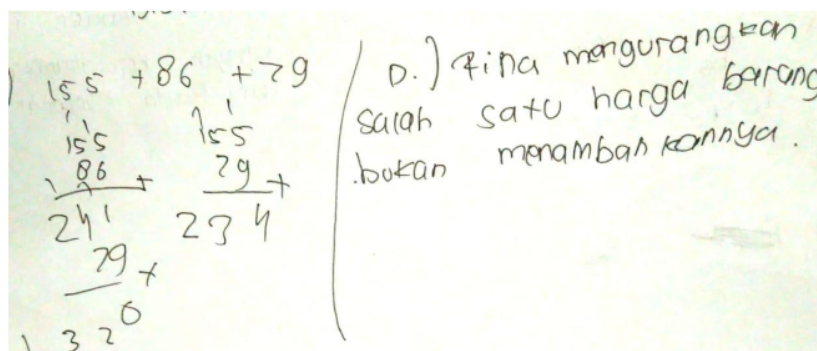 155 +86 +79
155
86 +
241
79 +
320
155
79 +
234
D.) Rina mengurangkan
salah satu harga barang
bukan menambahkannya.